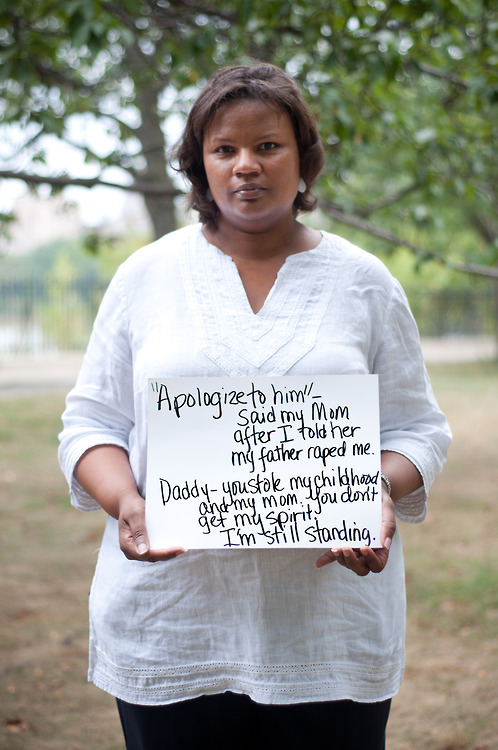 "Apologize to him" –
Said my Mom
after I told her
my father raped me.
Daddy – you stole my childhood
and my mom. You don't
get my spirit.
I'm still standing.